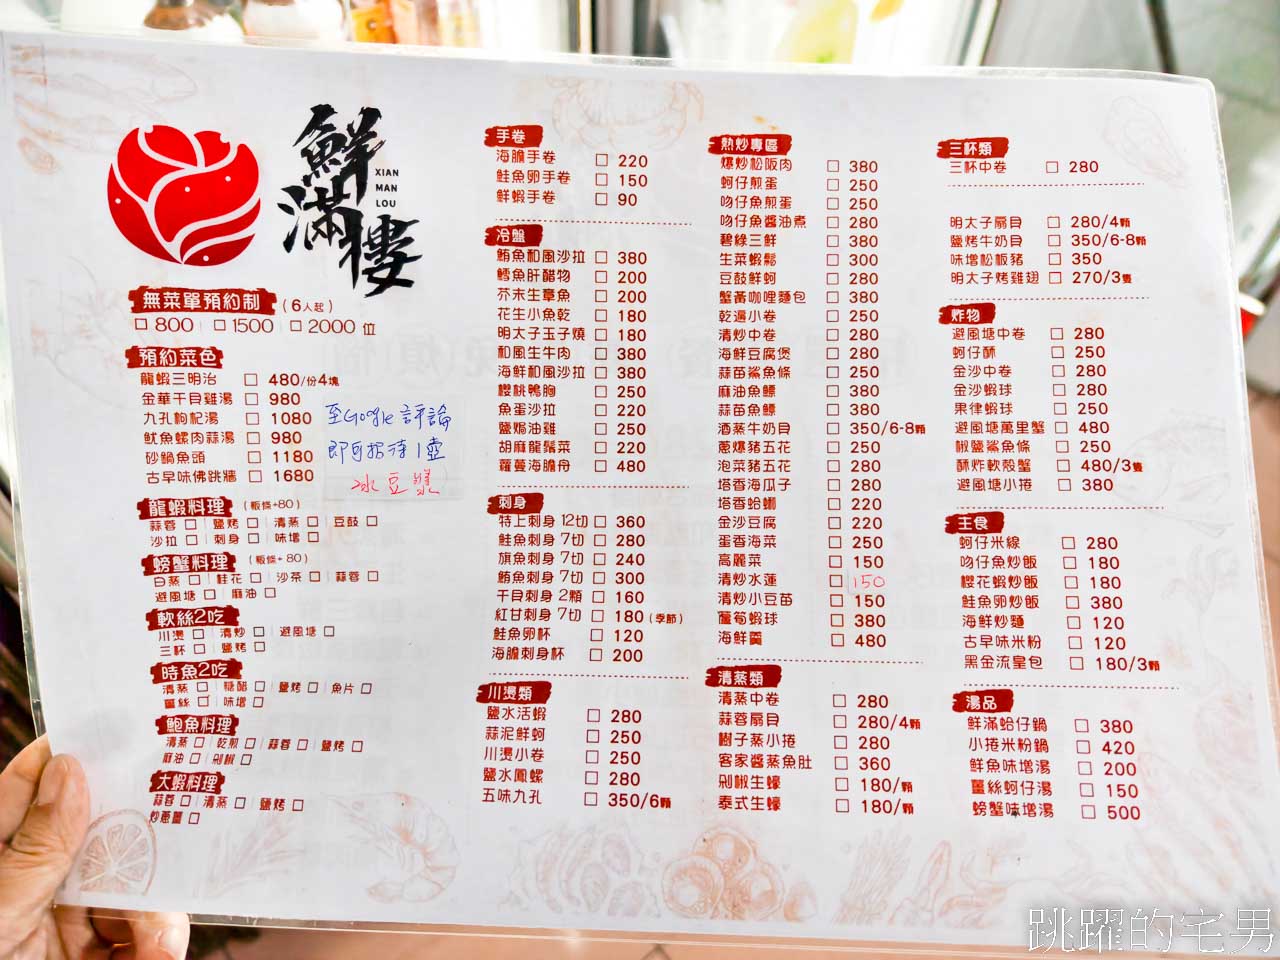 鮮滿樓
XIAN
MAN
LOU
無菜單預約制 (6人起)
□ 800 □ 1500 □ 2000 位
預約菜色
龍蝦三明治 □ 480/份4塊
金華干貝雞湯 □ 980
九孔枸杞湯 □ 1080
魷魚螺肉蒜湯 □ 980
砂鍋魚頭 □ 1180
古早味佛跳牆 □ 1680
至Google 評論
即可招待1壺
冰豆漿
龍蝦料理 (粄條+80)
蒜蓉 □ 鹽烤 □ 清蒸 □ 豆鼓 □
沙拉 □ 刺身 □ 味增 □
螃蟹料理 (粄條+80)
白蒸 □ 桂花 □ 沙茶 □ 蒜蓉 □
避風塘 □ 麻油 □
軟絲2吃
川燙 □ 清炒 □ 避風塘 □
三杯 □ 鹽烤 □
時魚2吃
清蒸 □ 糖醋 □ 鹽烤 □ 魚片 □
薑絲 □ 味增 □
鮑魚料理
清蒸 □ 乾煎 □ 蒜蓉 □ 鹽烤 □
麻油 □ 剁椒 □
大蝦料理
蒜蓉 □ 清蒸 □ 鹽烤 □
炒蔥薑 □
手卷
海膽手卷 □ 220
鮭魚卵手卷 □ 150
鮮蝦手卷 □ 90
冷盤
鮪魚和風沙拉 □ 380
鱈魚肝醋物 □ 200
芥末生章魚 □ 200
花生小魚乾 □ 180
明太子玉子燒 □ 180
和風生牛肉 □ 380
海鮮和風沙拉 □ 380
櫻桃鴨胸 □ 250
魚蛋沙拉 □ 220
鹽焗油雞 □ 250
胡麻龍鬚菜 □ 220
蘿蔓海膽舟 □ 480
刺身
特上刺身 12切 □ 360
鮭魚刺身 7切 □ 280
旗魚刺身 7切 □ 240
鮪魚刺身 7切 □ 300
干貝刺身 2顆 □ 160
紅甘刺身 7切 □ 180 (季節)
鮭魚卵杯 □ 120
海膽刺身杯 □ 200
川燙類
鹽水活蝦 □ 280
蒜泥鮮蚵 □ 250
川燙小卷 □ 250
鹽水鳳螺 □ 280
五味九孔 □ 350/6顆
熱炒專區
爆炒松阪肉 □ 380
蚵仔煎蛋 □ 250
吻仔魚煎蛋 □ 250
吻仔魚醬油煮 □ 280
碧綠三鮮 □ 380
生菜蝦鬆 □ 300
豆鼓鮮蚵 □ 280
蟹黃咖哩麵包 □ 380
乾遍小卷 □ 250
清炒中卷 □ 280
海鮮豆腐煲 □ 280
蒜苗鯊魚條 □ 250
麻油魚鰾 □ 380
蒜苗魚鰾 □ 380
酒蒸牛奶貝 □ 350/6-8顆
蔥爆豬五花 □ 250
泡菜豬五花 □ 280
塔香海瓜子 □ 280
塔香蛤蜊 □ 220
金沙豆腐 □ 220
蛋香海菜 □ 250
高麗菜 □ 150
清炒水蓮 □ 150
清炒小豆苗 □ 150
蘆筍蝦球 □ 380
海鮮羹 □ 480
清蒸類
清蒸中卷 □ 280
蒜蓉扇貝 □ 280/4顆
樹子蒸小捲 □ 280
客家醬蒸魚肚 □ 360
剁椒生蠔 □ 180/顆
泰式生蠔 □ 180/顆
三杯類
三杯中卷 □ 280
明太子扇貝 □ 280/4顆
鹽烤牛奶貝 □ 350/6-8顆
味增松板豬 □ 350
明太子烤雞翅 □ 270/3隻
炸物
避風塘中卷 □ 280
蚵仔酥 □ 250
金沙中卷 □ 280
金沙蝦球 □ 280
果律蝦球 □ 250
避風塘萬里蟹 □ 480
椒鹽鯊魚條 □ 250
酥炸軟殼蟹 □ 480/3隻
避風塘小捲 □ 380
主食
蚵仔米線 □ 280
吻仔魚炒飯 □ 180
櫻花蝦炒飯 □ 180
鮭魚卵炒飯 □ 380
海鮮炒麵 □ 120
古早味米粉 □ 120
黑金流皇包 □ 180/3顆
湯品
鮮滿蛤仔鍋 □ 380
小捲米粉鍋 □ 420
鮮魚味增湯 □ 200
薑絲蚵仔湯 □ 150
螃蟹味增湯 □ 500
跳躍的宅男